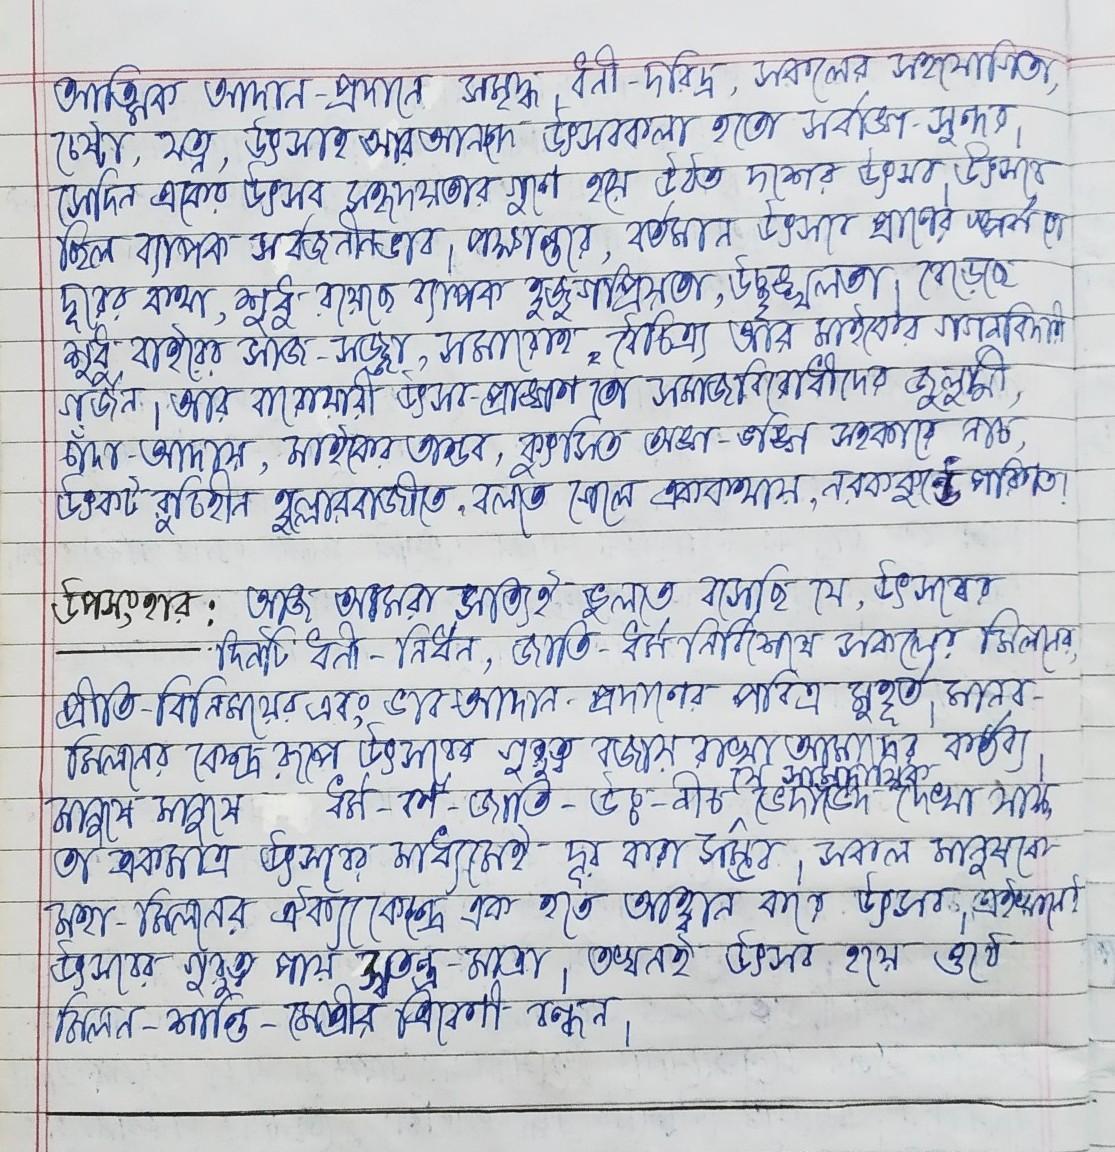 আত্মিক আদান-প্রদানে সমৃদ্ধ। ধনী-দরিদ্র, সকলের সহযোগিতা,
চেষ্টা, যত্ন, উৎসাহ আর আনন্দে উৎসবকলা হতো সর্বাঙ্গ-সুন্দর।
সেদিন একের উৎসব সহৃদয়তার গুণে হয়ে উঠত দশের উৎসব। উৎসবে
ছিল ব্যাপক সর্বজনীনভাব। পক্ষান্তরে, বর্তমান উৎসবে প্রাণের স্পর্শ তো
দূরের কথা, শুধু রয়েছে ব্যাপক হুজুগপ্রিয়তা, উচ্ছৃঙ্খলতা। বেড়েছে
শুধু বাইরের সাজ-সজ্জা, সমারোহ, বৈচিত্র্য আর মাইকের গগনবিদারী
গর্জন। আর বারোয়ারী উৎসব-প্রাঙ্গণ তো সমাজবিরোধীদের জুলুমী,
চাঁদা-আদায়, মাইকের তান্ডব, কুৎসিত অঙ্গ-ভঙ্গি সহকারে নাচ,
উৎকট রুচিহীন হুল্লোরবাজীতে, বলতে গেলে এককথায়, নরককুন্ডে পরিণত।
উপসংহার: আজ আমরা সত্যিই ভুলতে বসেছি যে, উৎসবের
দিনটি ধনী-নির্ধন, জাতি-ধর্ম নির্বিশেষে সকলের মিলনের,
প্রীতি-বিনিময়ের এবং ভাব-আদান-প্রদাণের পবিত্র মুহূর্ত। মানব-
মিলনের কেন্দ্র রূপে উৎসবের গুরুত্ব বজায় রাখা আমাদের কর্তব্য।
মানুষে মানুষে ধর্ম-বর্ণ-জাতি-উচ্চ-নীচ যে সাম্প্রদায়িক ভেদাভেদ দেখা যায়
তা একমাত্র উৎসবের মাধ্যমেই দূর করা সম্ভব। সকল মানুষকে
মহা-মিলনের ঐক্যকেন্দ্রে এক হতে আহ্বান করে উৎসব। এইখানেই
উৎসবের গুরুত্ব পায় স্বতন্ত্র-মাত্রা। তখনই উৎসব হয়ে ওঠে
মিলন-শান্তি-মৈত্রীর ত্রিবেণী বন্ধন।